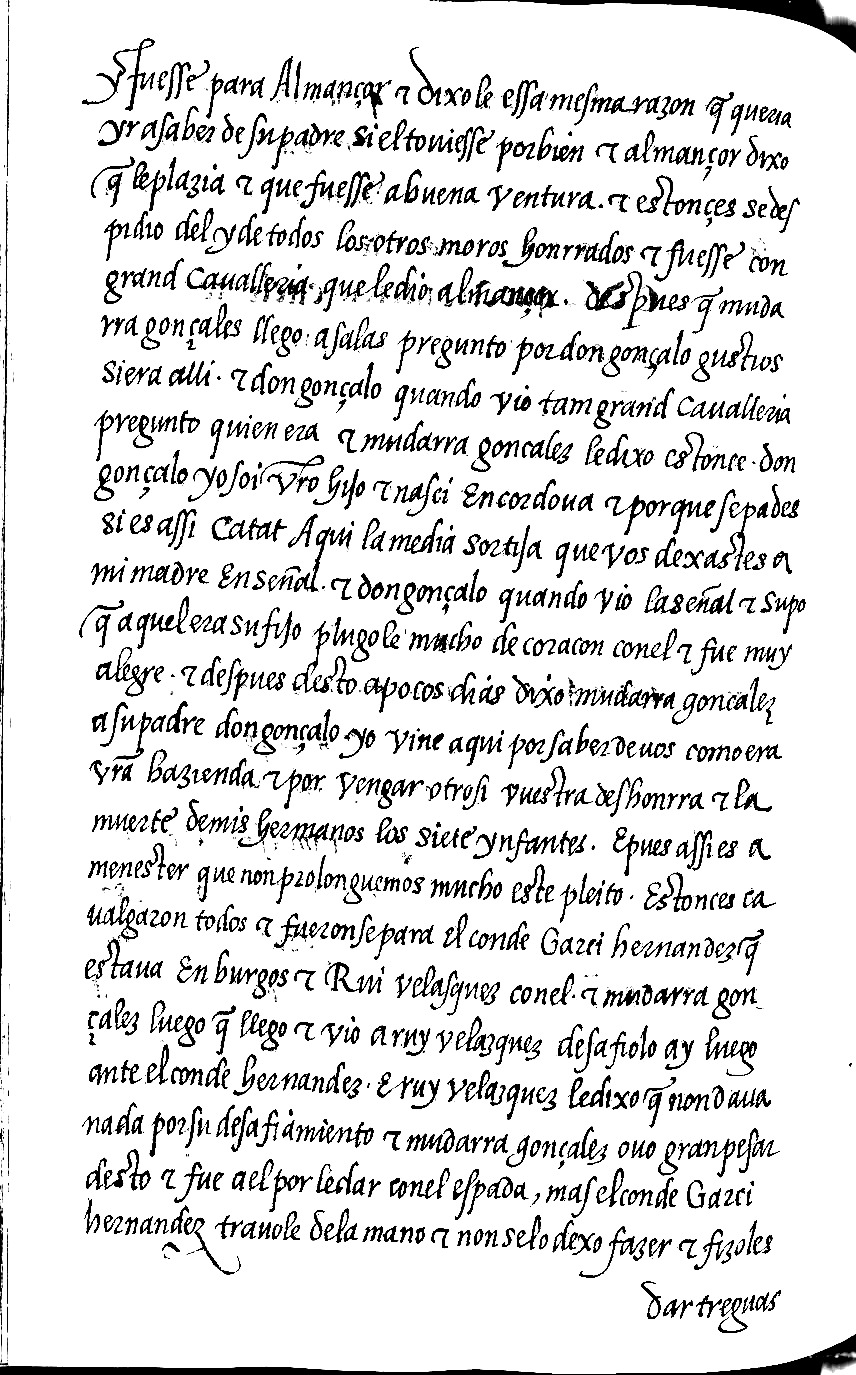 y fuesse para Almançor τ dixole essa mesma razon q̃ queria
yr a saber de su padre si el touiesse por bien τ almançor dixo
q̃ le plazia τ que fuesse a buena ventura. τ estonçes se des
pidio del y de todos los otros moros honrrados τ fuesse con
grand Cavalleria que le dio almançor. despues q̃ muda
rra gonçales llego a salas pregunto por don gonçalo gustios
si era alli. τ don gonçalo quando vio tam grand Cavalleria
pregunto quien era τ mudarra goncalez le dixo estonce. don
gonçalo yo soi vr̃o hijo τ nasci En cordova τ porque sepades
si es assi Catat Aqui la media sortija que vos dexastes a
mi madre En señal. τ don gonçalo quando vio la señal τ supo
q̃ aquel era su fijo plugole mucho de coracon con el τ fue muy
alegre. τ despues desto a pocos dias dixo mudarra goncalez
a su padre don gonçalo yo vine aqui por saber de uos como era
vr̃a hazienda τ por vengar otrosi vuestra deshonrra τ la
muerte de mis hermanos los siete ynfantes. E pues assi es a
menester que non prolonguemos mucho este pleito. Estonces ca
ualgaron todos τ fueronse para El conde Garci hernandez q̃
estaua En burgos τ Rui velasquez con el. τ mudarra gon
çalez luego q̃ llego τ vio a ruy velazquez desafiolo ay luego
ante el conde hernandez. E ruy velazquez le dixo q̃ non daua
nada por su desafiamiento τ mudarra gonçalez ouo gran pesar
desto τ fue a el por le dar con el espada, mas el conde Garci
hernandez trauole de la mano τ non se lo dexo fazer τ fizoles
dar treguas